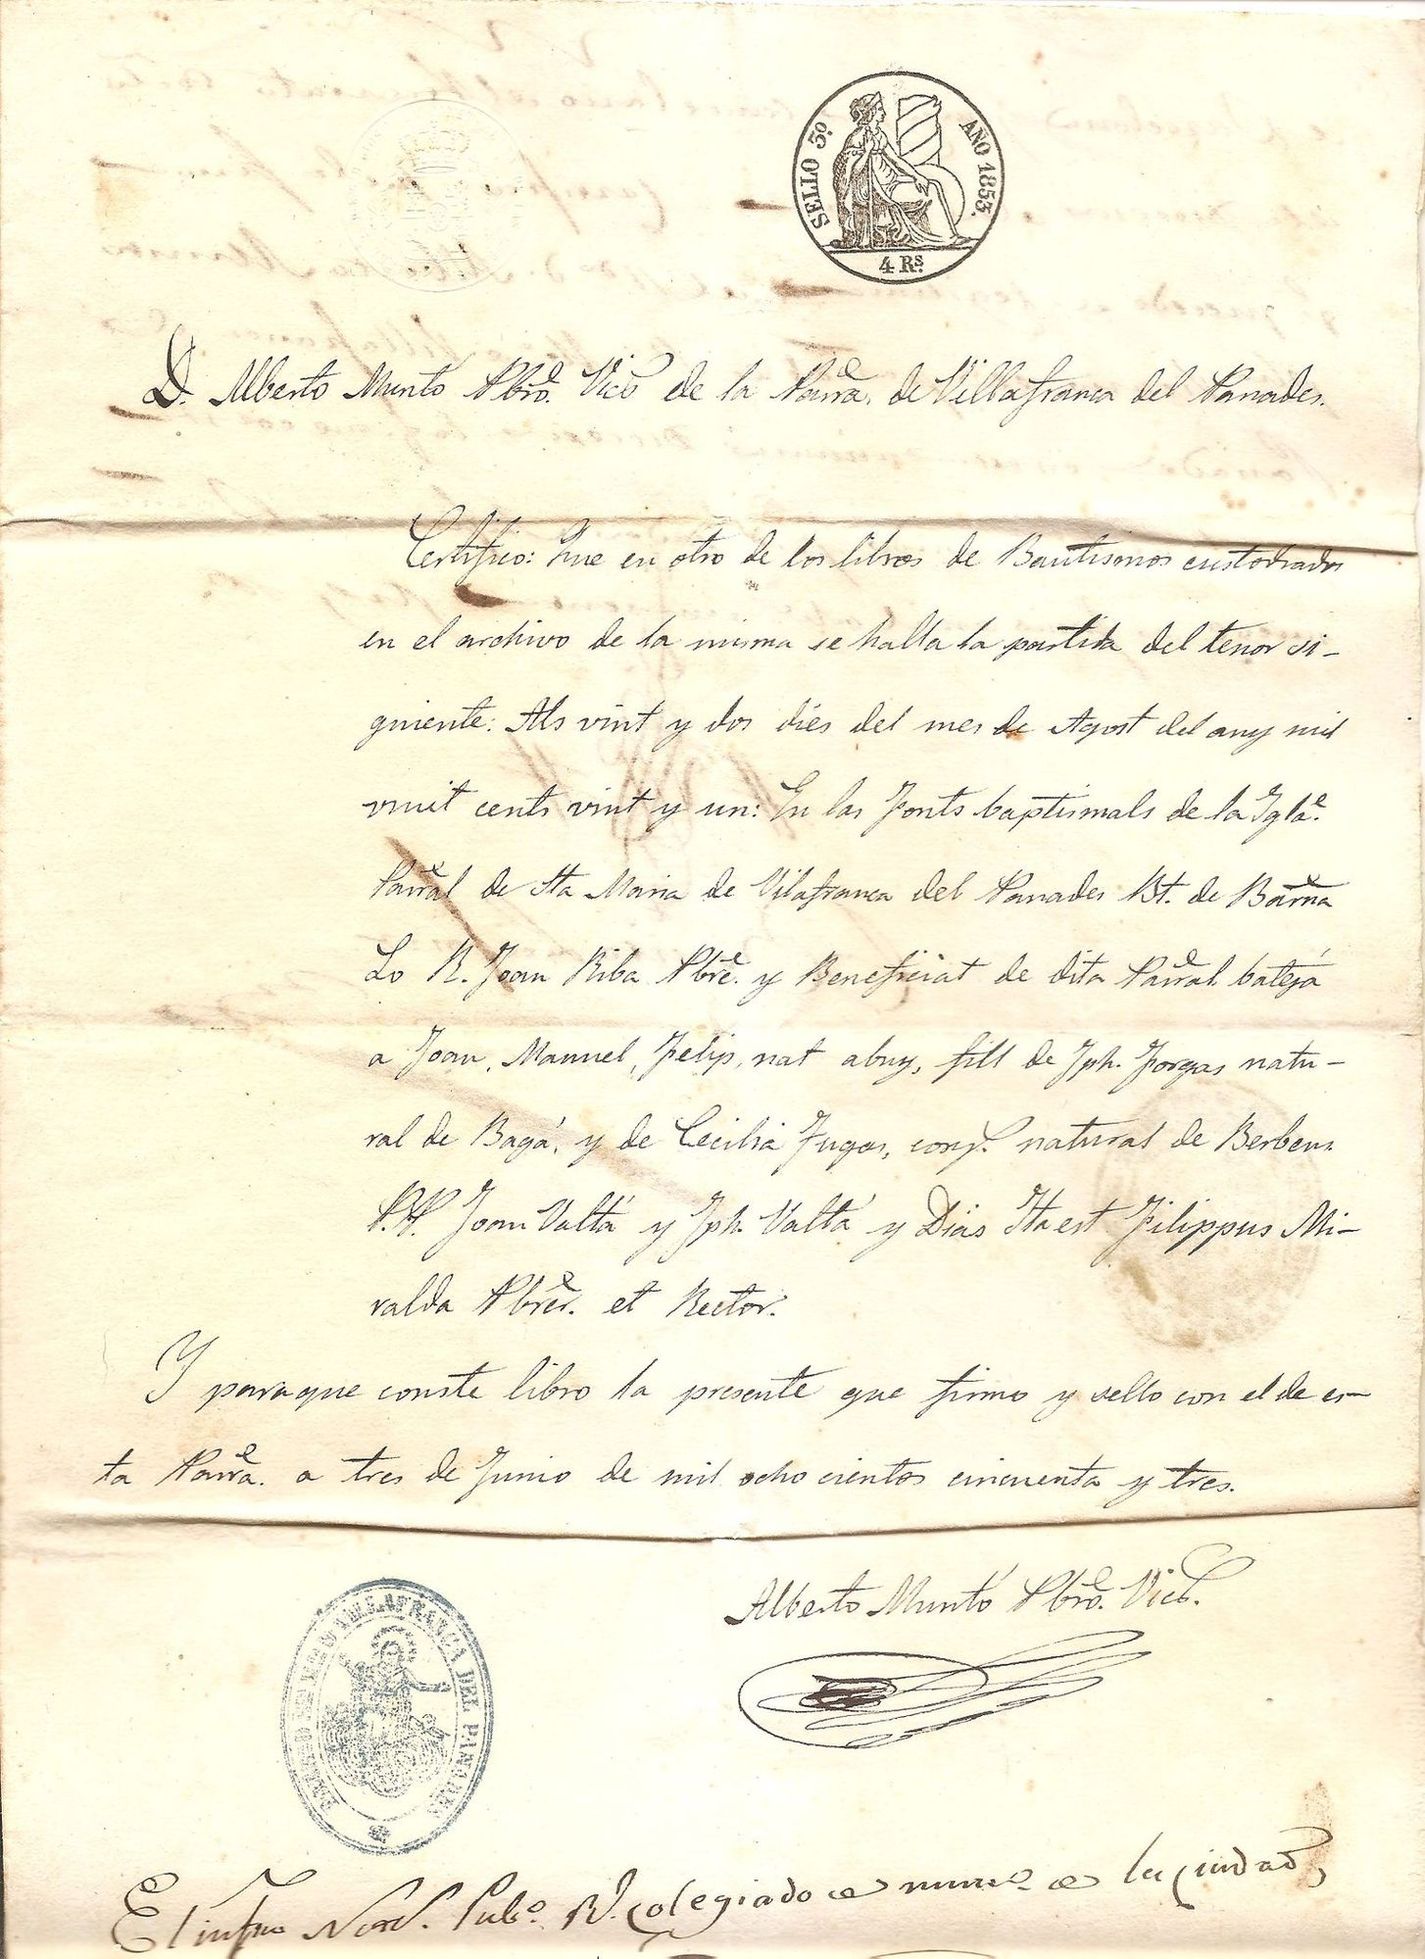 SELLO 3º AÑO 1853.
4 Rs.
D. Alberto Muntó Pbro. Vico de la Parra. de Villafranca del Panades.
Certifico: Que en otro de los libros de Bautismos custodiados
en el archivo de la misma se halla la partida del tenor si-
guiente: Als vint y dos dies del mes de Agost del any mil
vuit cents vint y un: En las Fonts baptismals de la Igla.
Parral de Sta Maria de Vilafranca del Panades Bt. de Barna
Lo R. Joan Riba Pbre. y Beneficiat de dita Parral batejá
a Joan, Manuel, Felip, nat ahuy, fill de Jph. Forgas natu-
ral de Bagá, y de Cecilia Fugas, conj. natural de Berbens.
P.P. Joan Valtá y Jph. Valtá y Dias Ita est Filippus Mi-
ralda Pbrer. et Rector.
Y paraque conste libro la presente que firmo y sello con el de es-
ta Parra. a tres de Junio de mil ocho cientos cincuenta y tres.
Alberto Muntó Pbro. Vico.
VILLAFRANCA DEL PANADES
El infro Nord. Pubo. Rl. colegiado de numo de la Ciudad,